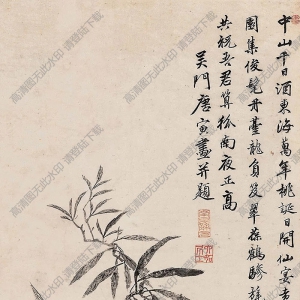 中山千日酒東海萬年桃誕日開仙宴老
團集俊髦丹臺龍負笈翠葆鶴驂
共祝吾君算狐南夜正高
吴門唐寅畫并題
高清图无此水印 请尝试下载